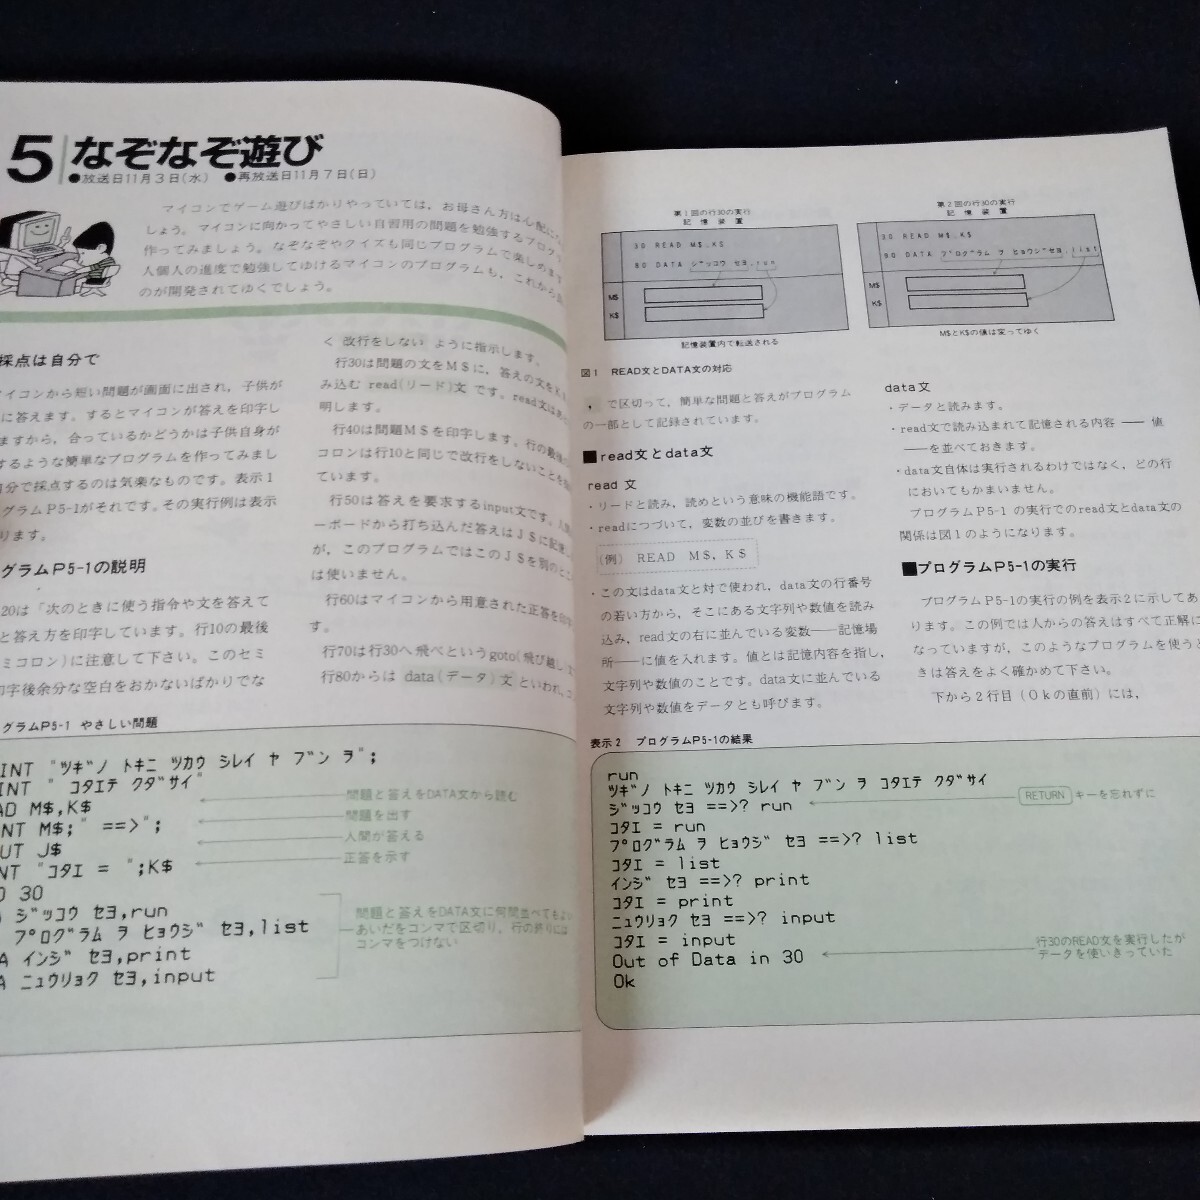 5 なぞなぞ遊び
●放送日11月3日(水) ●再放送日11月7日(日)
マイコンでゲーム遊びばかりやっていては，お母さん方は心配に
しょう。マイコンに向かってやさしい自習用の問題を勉強するプログ
作ってみましょう。なぞなぞやクイズも同じプログラムで楽しめます
人個人の進度で勉強してゆけるマイコンのプログラムも，これから
のが開発されてゆくでしょう。
採点は自分で
マイコンから短い問題が画面に出され，子供が
に答えます。するとマイコンが答えを印字し
ますから，合っているかどうかは子供自身が
するような簡単なプログラムを作ってみまし
自分で採点するのは気楽なものです。表示1
グラムP5-1がそれです。その実行例は表示
ります。
グラムP5-1の説明
20は「次のときに使う指令や文を答えて
と答え方を印字しています。行10の最後
ミコロン)に注意して下さい。このセミ
印字後余分な空白をおかないばかりでな
く 改行をしない ように指示します。
行30は問題の文をM$に，答えの文をK$
み込む read(リード)文 です。read文は
明します。
行40は問題M$を印字します。行の最後の
コロンは行10と同じで改行をしないことを
ています。
行50は答えを要求するinput文です。人
ーボードから打ち込んだ答えはJ$に記憶し
が，このプログラムではこのJ$を別のとこ
は使いません。
行60はマイコンから用意された正答を印
す。
行70は行30へ飛べというgoto(飛び越し)
行80からは data(データ)文 といわれ，コ
グラムP5-1 やさしい問題
INT "ツギノ トキニ ツカウ シレイ ヤ ブン ヲ";
INT " コタエテ クダサイ"
AD M$,K$
NT M$;" ==>";
UT J$
NT "コタエ = ";K$
O 30
ジッコウ セヨ,run
プログラム ヲ ヒョウジ セヨ,list
A インジ セヨ,print
A ニュウリョク セヨ,input
問題と答えをDATA文から読む
問題を出す
人間が答える
正答を示す
問題と答えをDATA文に何問並べてもよい
あいだをコンマで区切り，行の終りには
コンマをつけない
第1回の行30の実行
記憶装置
30 READ M$,K$
80 DATA ジッコウ セヨ,run
M$
K$
記憶装置内で転送される
第2回の行30の実行
記憶装置
30 READ M$,K$
90 DATA プログラム ヲ ヒョウジ セヨ,list
M$
K$
M$とK$の値は変ってゆく
図1 READ文とDATA文の対応
，で区切って，簡単な問題と答えがプログラム
の一部として記録されています。
■read文とdata文
read 文
・リードと読み，読めという意味の機能語です。
・readにつづいて，変数の並びを書きます。
(例) READ M$，K$
・この文はdata文と対で使われ，data文の行番号
の若い方から，そこにある文字列や数値を読み
込み，read文の右に並んでいる変数——記憶場
所——に値を入れます。値とは記憶内容を指し，
文字列や数値のことです。data文に並んでいる
文字列や数値をデータとも呼びます。
data文
・データと読みます。
・read文で読み込まれて記憶される内容——値
——を並べておきます。
・data文自体は実行されるわけではなく，どの行
においてもかまいません。
プログラムP5-1の実行でのread文とdata文の
関係は図1のようになります。
■プログラムP5-1の実行
プログラムP5-1の実行の例を表示2に示してあ
ります。この例では人からの答えはすべて正解に
なっていますが，このようなプログラムを使うと
きは答えをよく確かめて下さい。
下から2行目(Okの直前)には，
表示2 プログラムP5-1の結果
run
ツギノ トキニ ツカウ シレイ ヤ ブン ヲ コタエテ クダサイ
ジッコウ セヨ ==>? run
コタエ = run
プログラム ヲ ヒョウジ セヨ ==>? list
コタエ = list
インジ セヨ ==>? print
コタエ = print
ニュウリョク セヨ ==>? input
コタエ = input
Out of Data in 30
Ok
RETURN キーを忘れずに
行30のREAD文を実行したが
データを使いきっていた